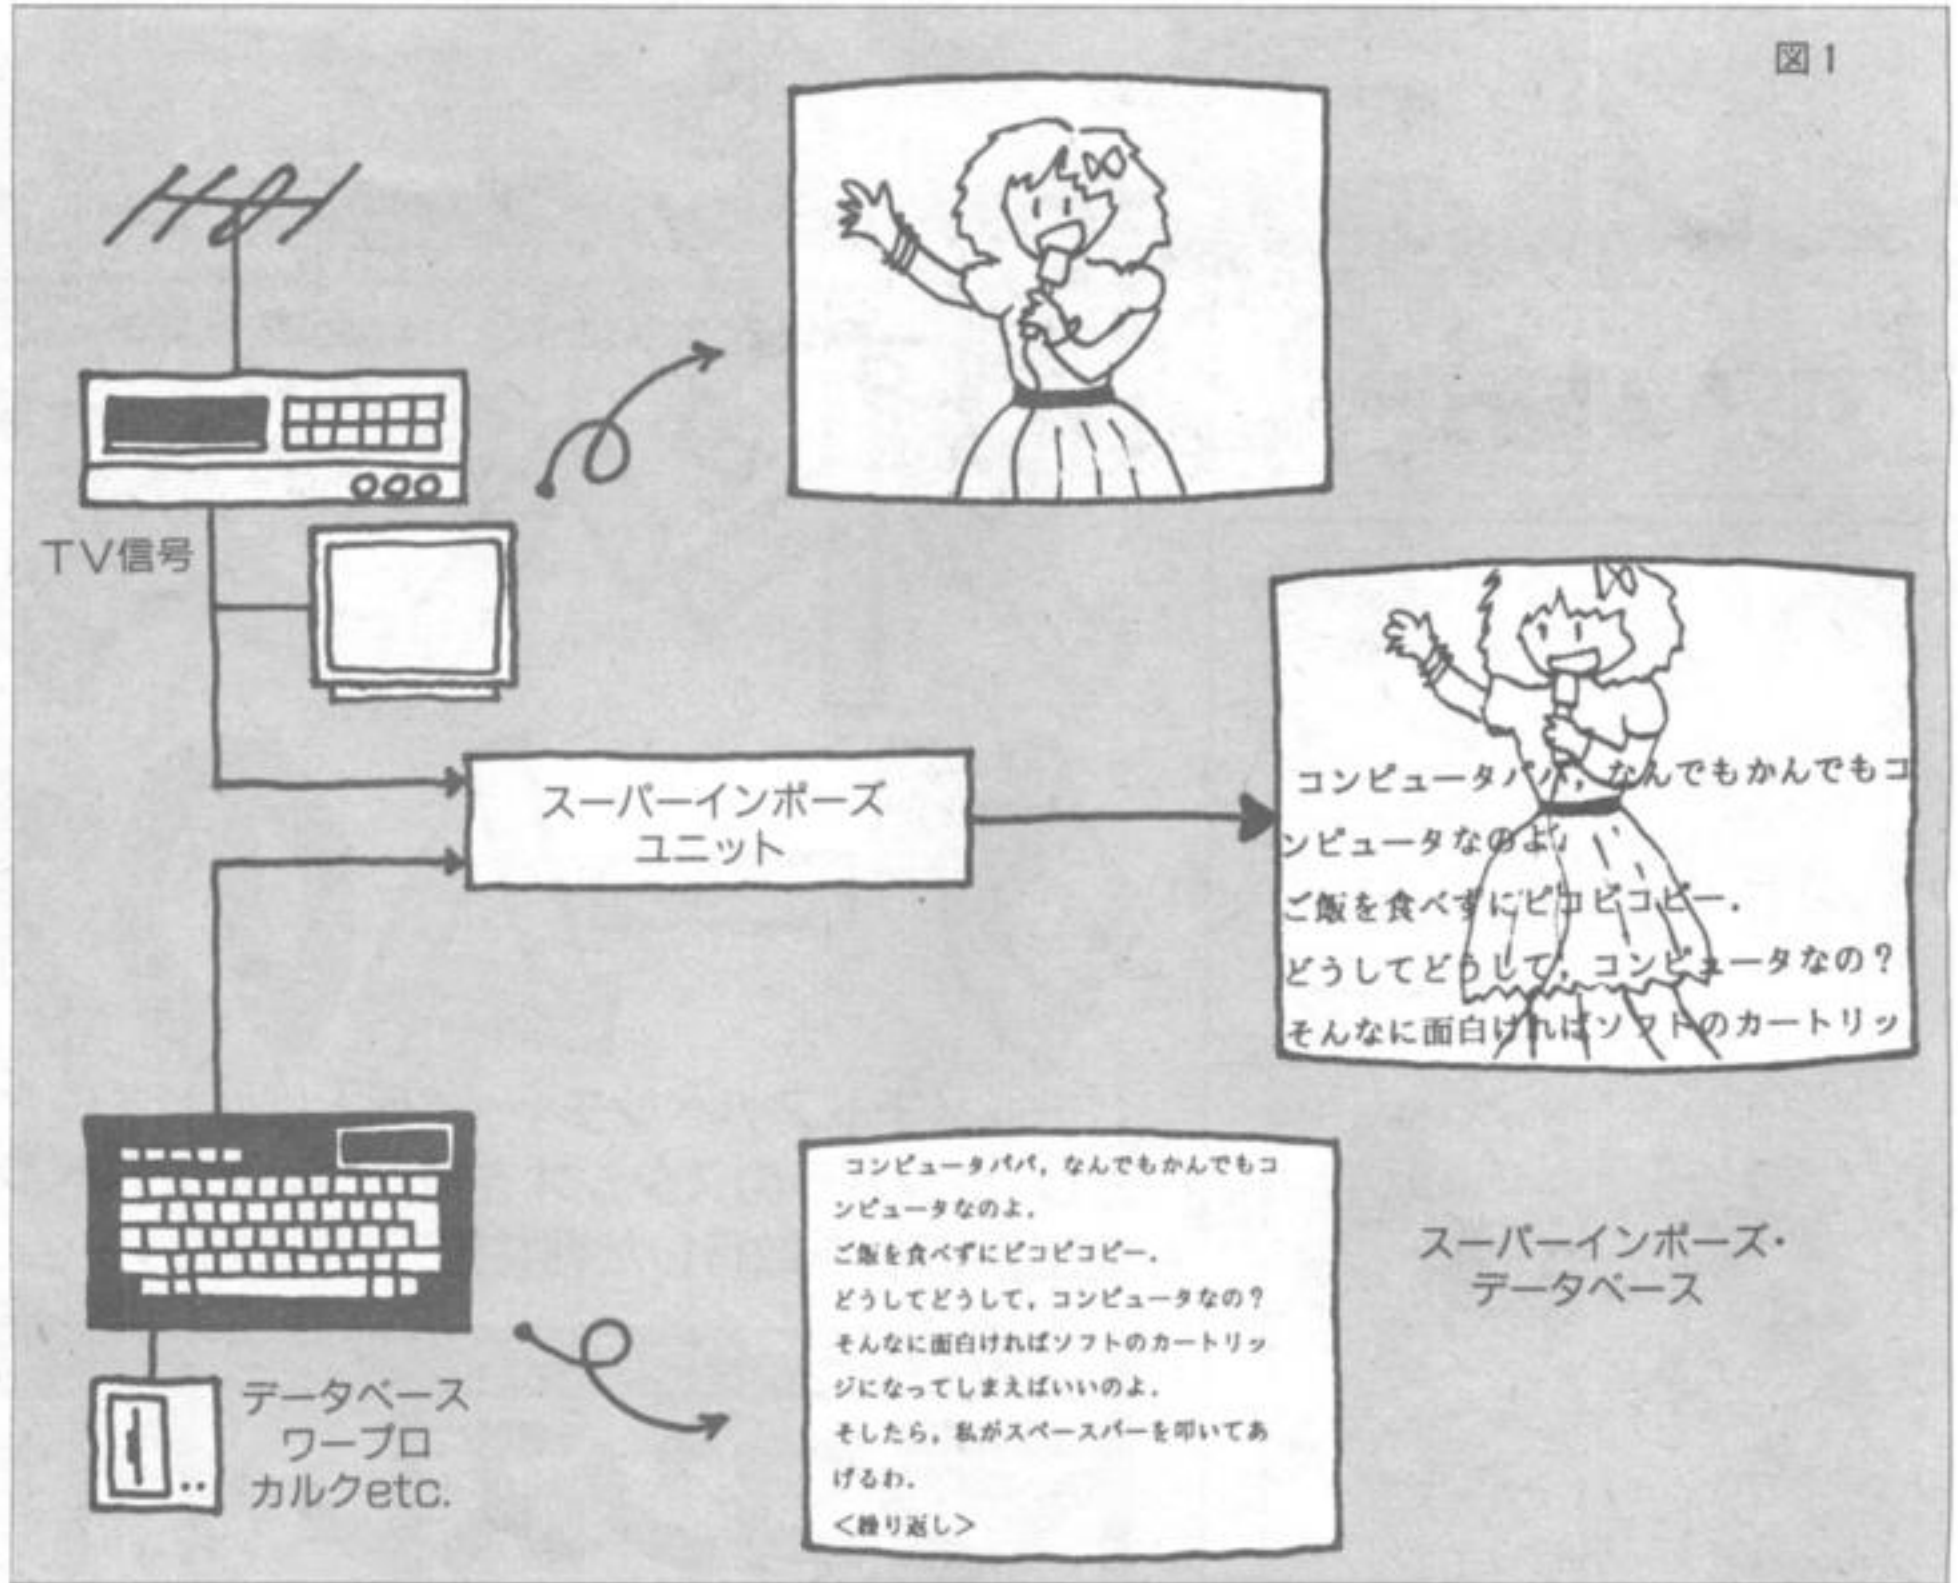 図1
TV信号
スーパーインポーズ
ユニット
コンピュータパパ，なんでもかんでもコ
ンピュータなのよ．
ご飯を食べずにピコピコピー．
どうしてどうして，コンピュータなの？
そんなに面白ければソフトのカートリッ
データベース
ワープロ
カルクetc.
コンピュータパパ，なんでもかんでもコ
ンピュータなのよ．
ご飯を食べずにピコピコピー．
どうしてどうして，コンピュータなの？
そんなに面白ければソフトのカートリッ
ジになってしまえばいいのよ．
そしたら，私がスペースバーを叩いてあ
げるわ．
＜繰り返し＞
スーパーインポーズ・
データベース